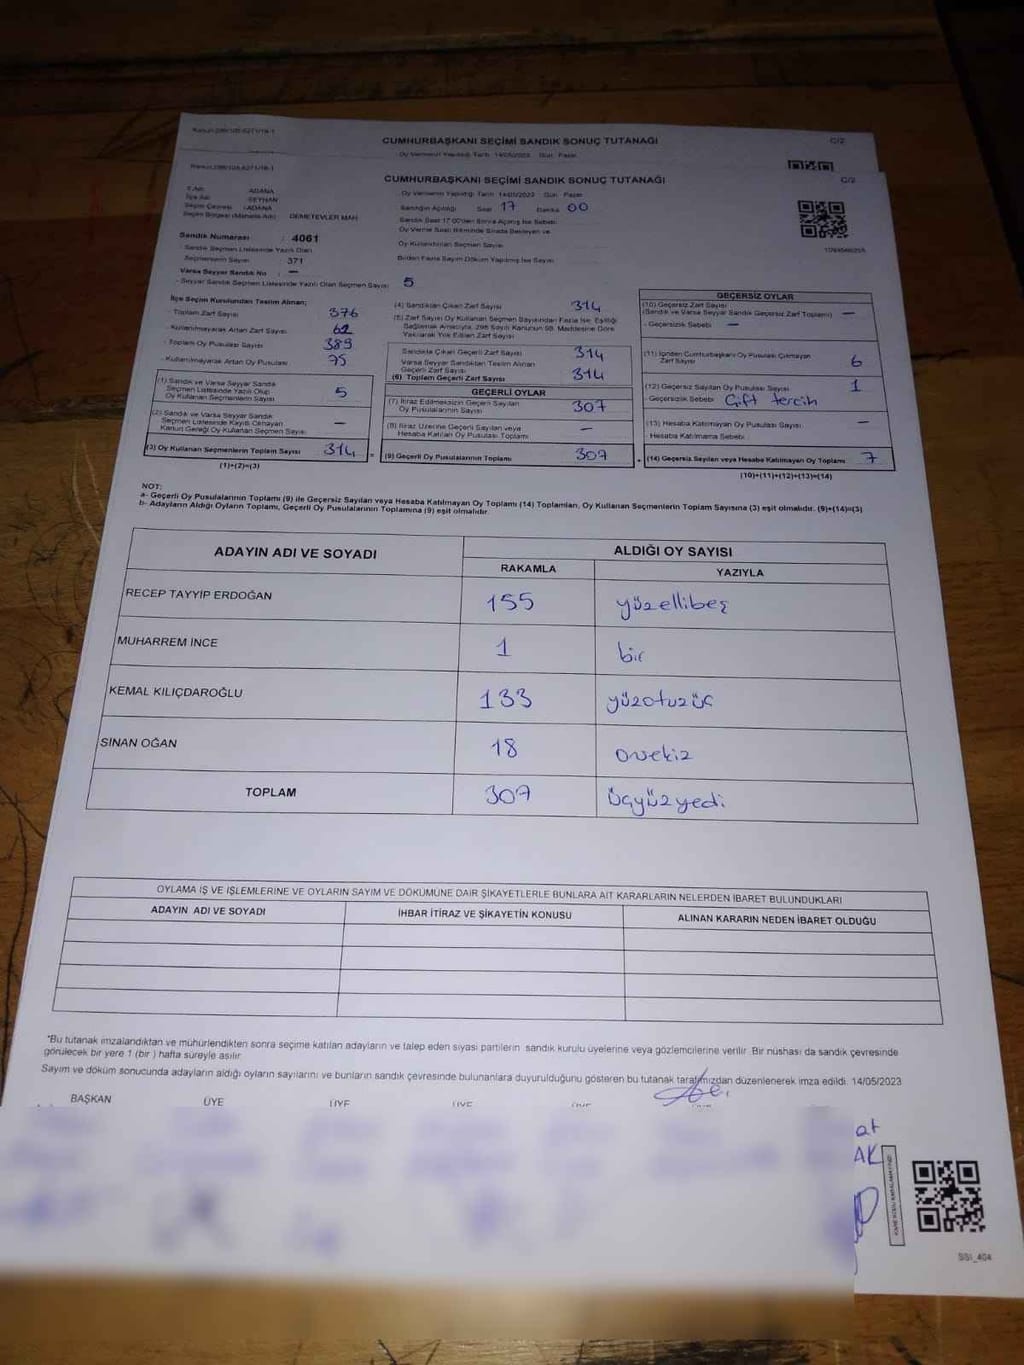 CUMHURBAŞKANI SEÇİMİ SANDIK SONUÇ TUTANAĞI
C/2
Oy Vermenin Yapıldığı Tarih 14/05/2023 Gün Pazar
CUMHURBAŞKANI SEÇİMİ SANDIK SONUÇ TUTANAĞI
C/2
Oy Vermenin Yapıldığı Tarih 14/05/2023 Gün Pazar
İl Adı: ADANA
İlçe Adı: SEYHAN
Seçim Çevresi: ADANA
Seçim Bölgesi (Mahalle Adı): DEMETEVLER MAH.
Sandığın Açıldığı Saat 17 Dakika 00
Sandık Saat 17:00'den Sonra Açılmış İse Sebebi:
Oy Verme Saati Bitiminde Sırada Bekleyen ve
Oy Kullandırılan Seçmen Sayısı
Birden Fazla Sayım Döküm Yapılmış İse Sayısı
Sandık Numarası : 4061
Sandık Seçmen Listesinde Yazılı Olan
Seçmenlerin Sayısı 371
Varsa Seyyar Sandık No : —
- Seyyar Sandık Seçmen Listesinde Yazılı Olan Seçmen Sayısı 5
İlçe Seçim Kurulundan Teslim Alınan;
- Toplam Zarf Sayısı 376
- Kullanılmayarak Artan Zarf Sayısı 62
- Toplam Oy Pusulası Sayısı 389
- Kullanılmayarak Artan Oy Pusulası 75
(1) Sandık ve Varsa Seyyar Sandık
Seçmen Listesinde Yazılı Olup
Oy Kullanan Seçmenlerin Sayısı 5
(2) Sandık ve Varsa Seyyar Sandık
Seçmen Listesinde Kayıtlı Olmayan
Kanun Gereği Oy Kullanan Seçmen Sayısı —
(3) Oy Kullanan Seçmenlerin Toplam Sayısı 314
(1)+(2)=(3)
(4) Sandıktan Çıkan Zarf Sayısı 314
(5) Zarf Sayısı Oy Kullanan Seçmen Sayısından Fazla İse, Eşitliği
Sağlamak Amacıyla, 298 Sayılı Kanunun 98. Maddesine Göre
Yakılarak Yok Edilen Zarf Sayısı
Sandıkta Çıkan Geçerli Zarf Sayısı 314
Varsa Seyyar Sandıktan Teslim Alınan
Geçerli Zarf Sayısı
(6) Toplam Geçerli Zarf Sayısı 314
GEÇERLİ OYLAR
(7) İtiraz Edilmeksizin Geçerli Sayılan
Oy Pusulalarının Sayısı 307
(8) İtiraz Üzerine Geçerli Sayılan veya
Hesaba Katılan Oy Pusulası Toplamı —
(9) Geçerli Oy Pusulalarının Toplamı 307
GEÇERSİZ OYLAR
(10) Geçersiz Zarf Sayısı
(Sandık ve Varsa Seyyar Sandık Geçersiz Zarf Toplamı) —
- Geçersizlik Sebebi —
(11) İçinden Cumhurbaşkanı Oy Pusulası Çıkmayan
Zarf Sayısı 6
(12) Geçersiz Sayılan Oy Pusulası Sayısı 1
- Geçersizlik Sebebi Çift tercih
(13) Hesaba Katılmayan Oy Pusulası Sayısı —
Hesaba Katılmama Sebebi
(14) Geçersiz Sayılan veya Hesaba Katılmayan Oy Toplamı 7
(10)+(11)+(12)+(13)=(14)
NOT:
a- Geçerli Oy Pusulalarının Toplamı (9) ile Geçersiz Sayılan veya Hesaba Katılmayan Oy Toplamı (14) Toplamları, Oy Kullanan Seçmenlerin Toplam Sayısına (3) eşit olmalıdır. (9)+(14)=(3)
b- Adayların Aldığı Oyların Toplamı, Geçerli Oy Pusulalarının Toplamına (9) eşit olmalıdır.
ADAYIN ADI VE SOYADI
ALDIĞI OY SAYISI
RAKAMLA YAZIYLA
RECEP TAYYİP ERDOĞAN 155 yüzellibeş
MUHARREM İNCE 1 bir
KEMAL KILIÇDAROĞLU 133 yüzotuzüç
SİNAN OĞAN 18 onsekiz
TOPLAM 307 üçyüzyedi
OYLAMA İŞ VE İŞLEMLERİNE VE OYLARIN SAYIM VE DÖKÜMÜNE DAİR ŞİKAYETLERLE BUNLARA AİT KARARLARIN NELERDEN İBARET BULUNDUKLARI
ADAYIN ADI VE SOYADI İHBAR İTİRAZ VE ŞİKAYETİN KONUSU ALINAN KARARIN NEDEN İBARET OLDUĞU
*Bu tutanak imzalandıktan ve mühürlendikten sonra seçime katılan adayların ve talep eden siyasi partilerin sandık kurulu üyelerine veya gözlemcilerine verilir. Bir nüshası da sandık çevresinde
görülecek bir yere 1 (bir) hafta süreyle asılır.
Sayım ve döküm sonucunda adayların aldığı oyların sayılarını ve bunların sandık çevresinde bulunanlara duyurulduğunu gösteren bu tutanak tarafımızdan düzenlenerek imza edildi. 14/05/2023
BAŞKAN ÜYE ÜYE ÜYE
at
AK
SSI_404